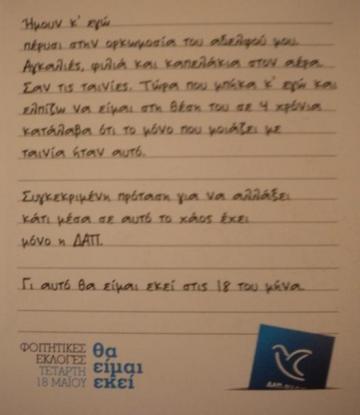 Ήμουν κ' εγώ
πέρυσι στην ορκωμοσία του αδελφού μου.
Αγκαλιές, φιλιά και καπελάκια στον αέρα.
Σαν τις ταινίες. Τώρα που μπήκα κ' εγώ και
ελπίζω να είμαι στη θέση του σε 4 χρόνια
κατάλαβα ότι το μόνο που μοιάζει με
ταινία ήταν αυτό.
Συγκεκριμένη πρόταση για να αλλάξει
κάτι μέσα σε αυτό το χάος έχει
μόνο η ΔΑΠ.
Γι αυτό θα είμαι εκεί στις 18 του μήνα.
ΦΟΙΤΗΤΙΚΕΣ
ΕΚΛΟΓΕΣ
ΤΕΤΑΡΤΗ
18 ΜΑΪΟΥ
θα
είμαι
εκεί